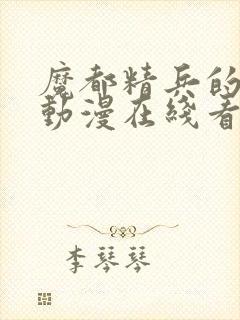 魔都精兵的
動漫在綫看
李琴琴